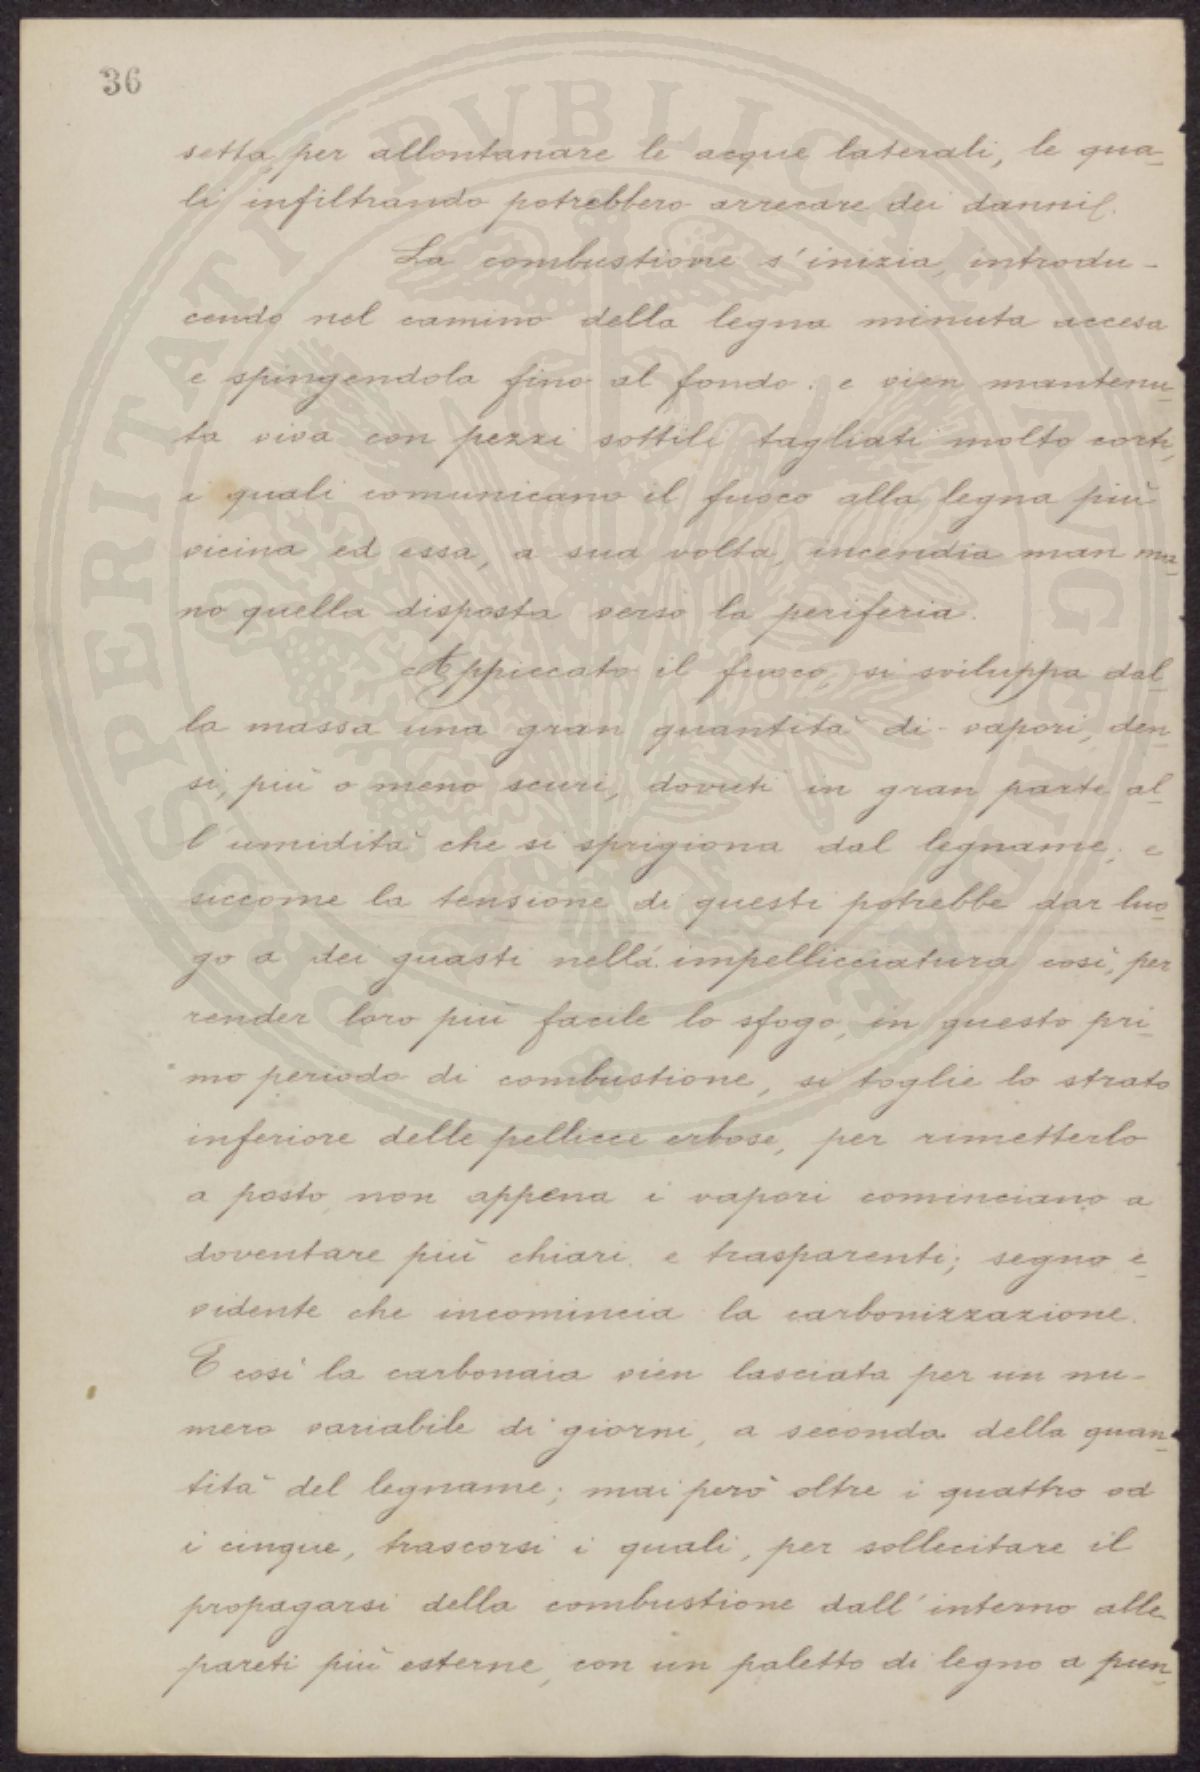 36
setta, per allontanare le acque laterali, le qua-
li infiltrando potrebbero arrecare dei danni.
La combustione s'inizia, introdu-
cendo nel camino della legna minuta accesa
e spingendola fino al fondo: e vien mantenu-
ta viva con pezzi sottili tagliati molto corti,
i quali comunicano il fuoco alla legna più
vicina ed essa, a sua volta, incendia man ma-
no quella disposta verso la periferia.
Appiccato il fuoco, si sviluppa dal-
la massa una gran quantità di vapori, den-
si, più o meno scuri, dovuti in gran parte al-
l'umidità che si sprigiona dal legname; e
siccome la tensione di questi potrebbe dar luo-
go a dei guasti nella impellicciatura così, per
render loro più facile lo sfogo, in questo pri-
mo periodo di combustione, si toglie lo strato
inferiore delle pellicce erbose, per rimetterlo
a posto, non appena i vapori cominciano a
doventare più chiari e trasparenti; segno e-
vidente che incomincia la carbonizzazione.
E così la carbonaia vien lasciata per un nu-
mero variabile di giorni, a seconda della quan-
tità del legname; mai però oltre i quattro od
i cinque, trascorsi i quali, per sollecitare il
propagarsi della combustione dall'interno alle
pareti più esterne, con un paletto di legno a pun-
PROSPERITATI PVBLICAE AVGENDAE